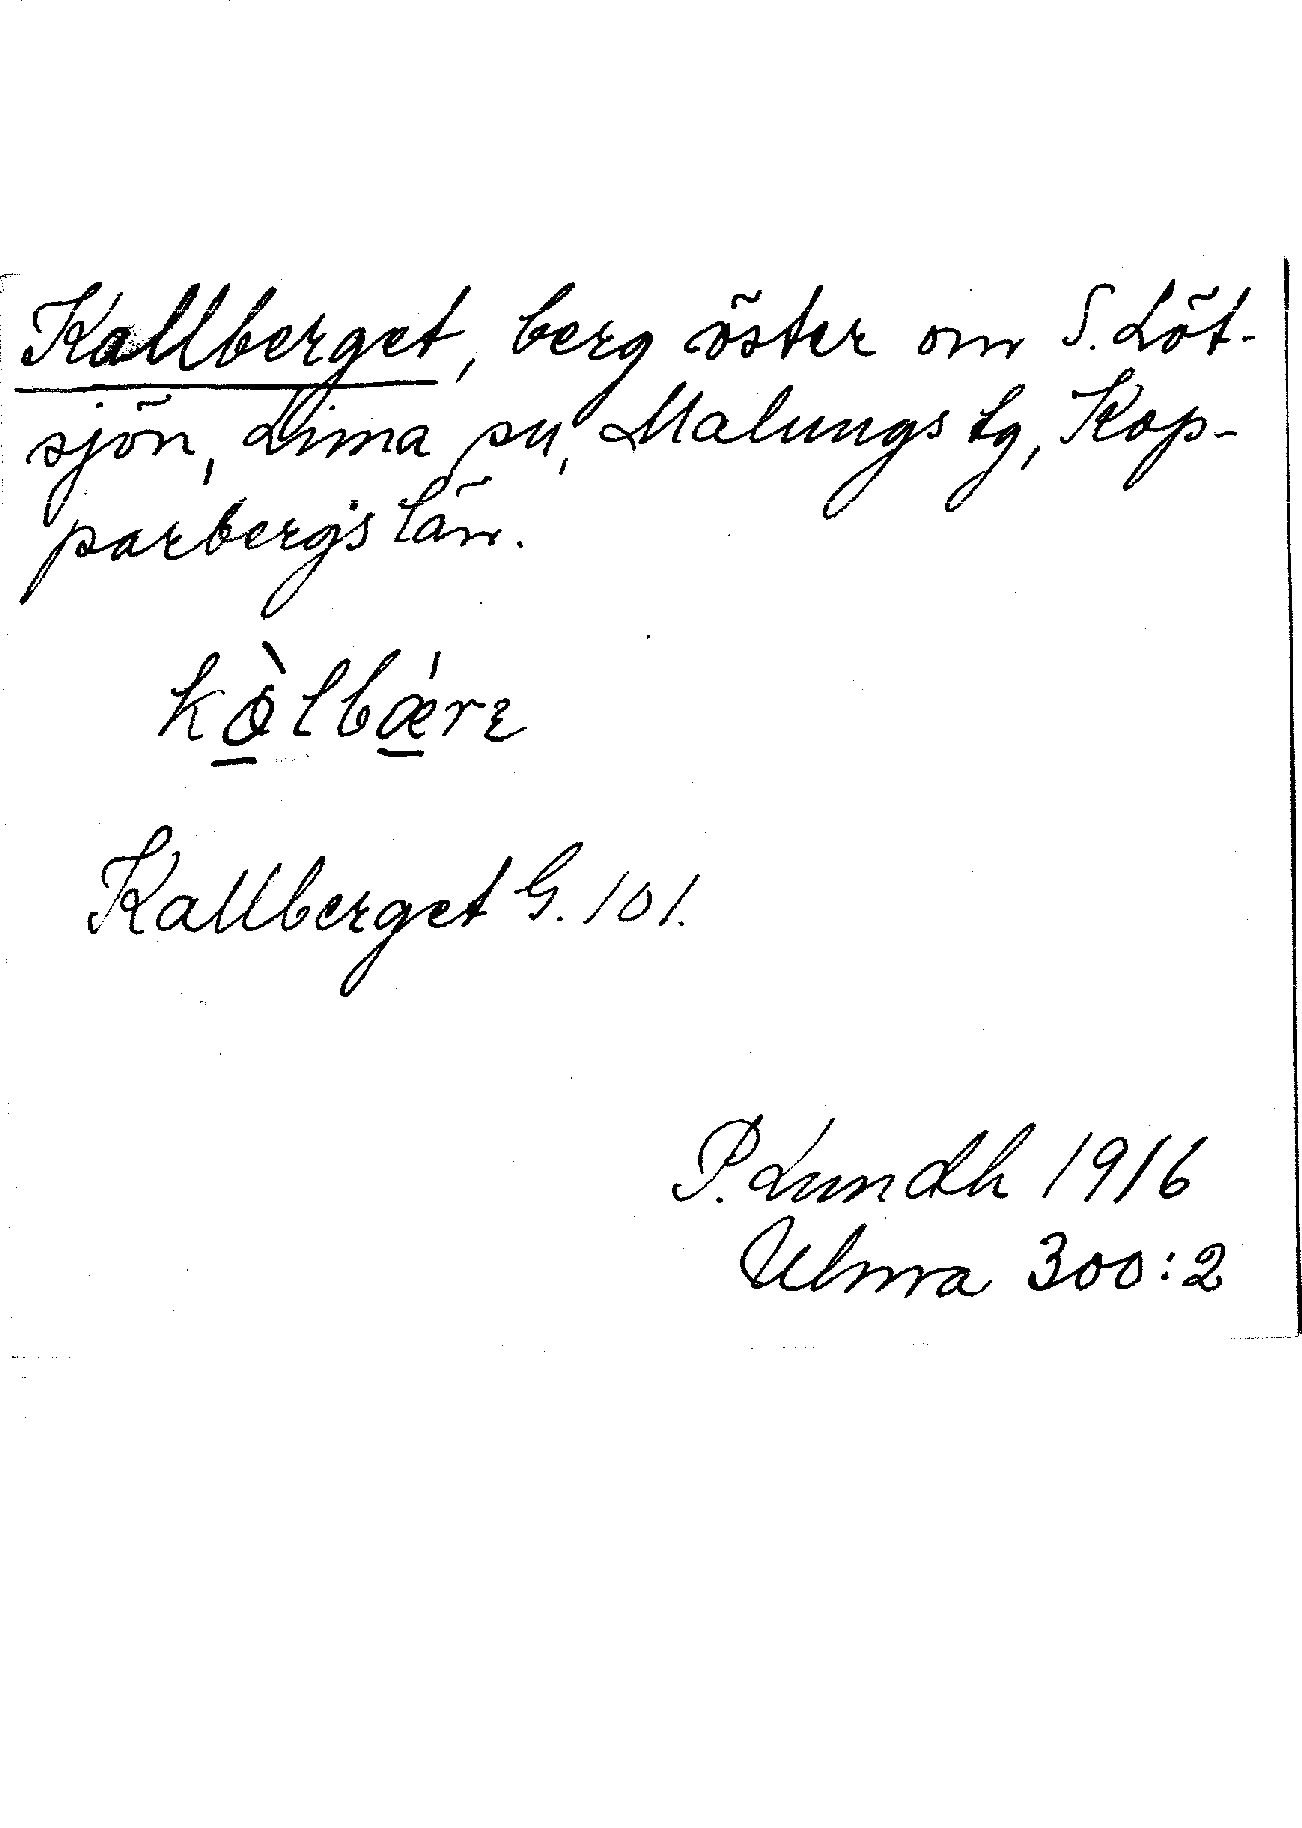 Kallberget, berg öster om S. Löt-
sjön, Lima sn, Malungs tg, Kop-
parbergs län.
kòlbǽrɛ
Kallberget G. 101.
P. Lundh 1916
Ulma 300:2